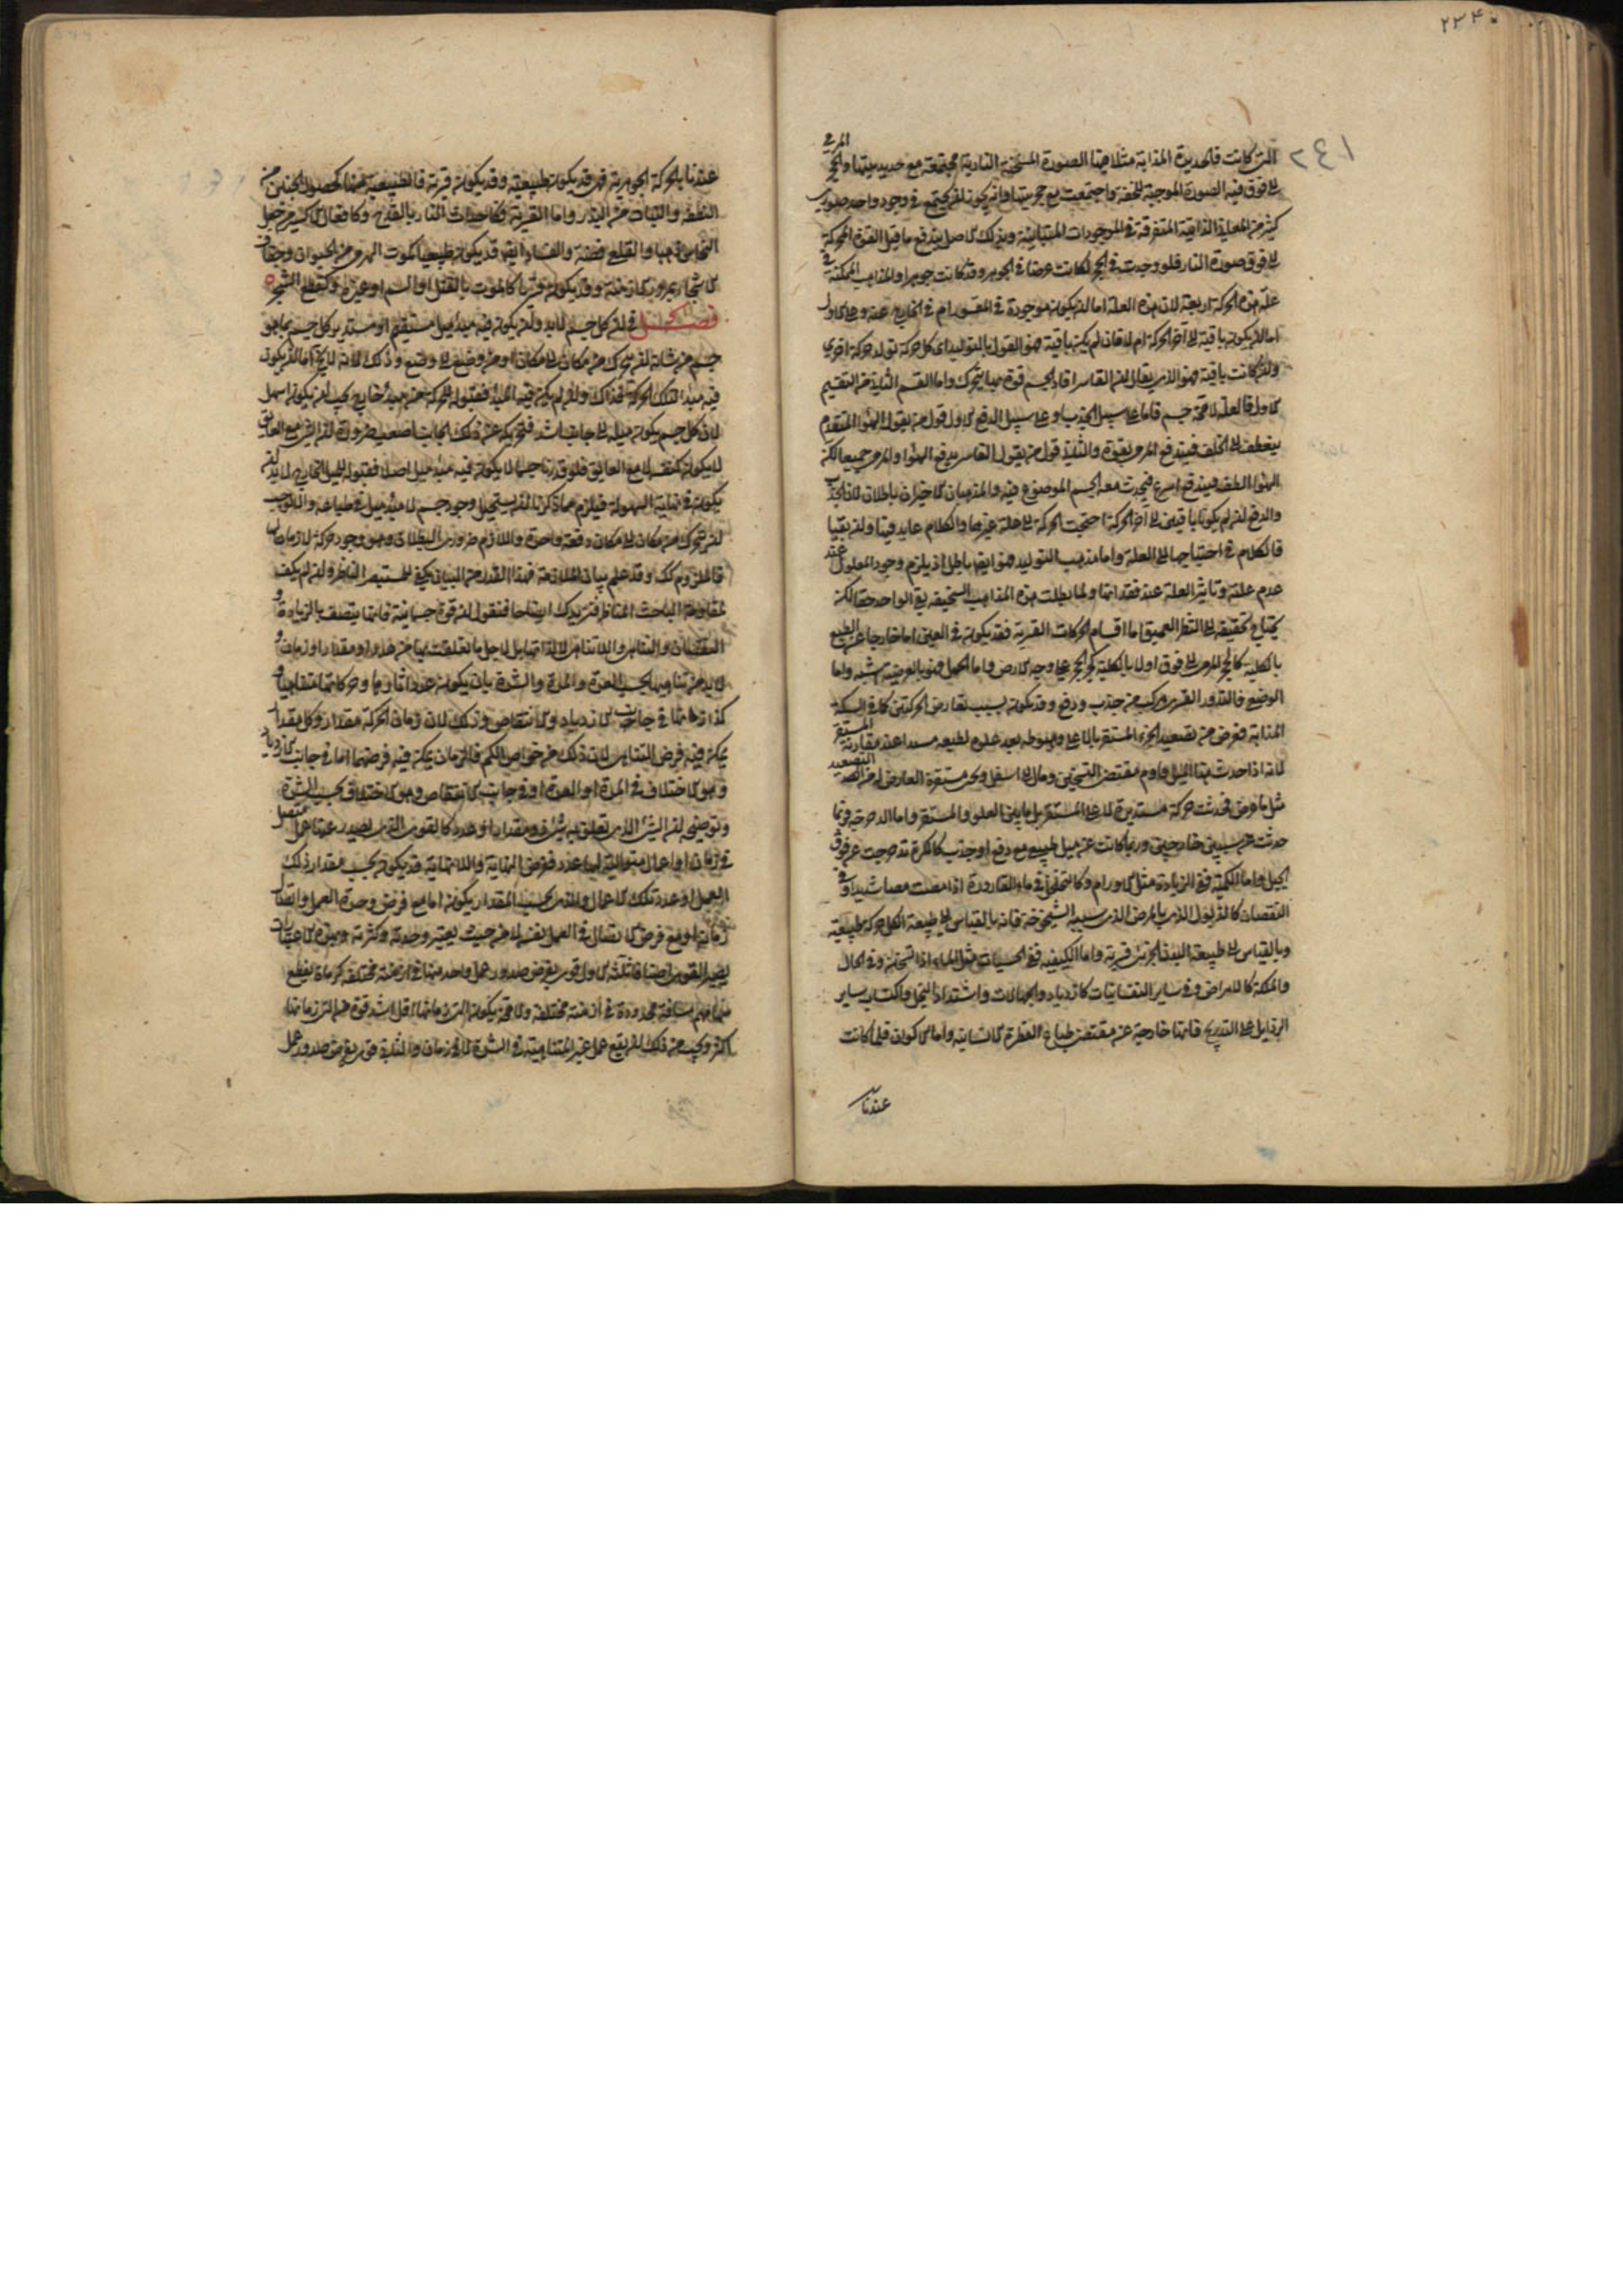 ٢٣٤
٢٤١
التي كانت فالحديدة المذابة مثلا هيهنا الصورة المسخنة النارية مجتمعة مع حديديتها والحجر المرمي
الى فوق فيه الصورة الموجبة للخفة واجتمعت مع حجريتها فانه يجوز ان يجتمع في وجود واحد صورى
كثير من المعاني الذاتية المتفرقة في الموجودات المتباينة وبذلك الاصل يندفع ما قيل القوة المحركة
الى فوق صورة النار فلو وجدت في الحجر لكانت عرضا في الجوهر وقد كانت جوهرا والمذاهب الممكنة في
علة هذه الحركة اربعة لان هذه العلة اما ان يكون موجودة في المقسور ام في الخارج عنه وعلى الاول
اما ان يكون باقية الى آخر الحركة ام لا فان لم يكن باقية فهو القول بالتوليد اى كل حركة تولد حركة اخرى
وان كانت باقية فهو الذي يقال ان القاسر افاد الجسم قوة بها يتحرك واما القسم الثاني من التقسيم
الاول فالعلة لا محة جسم فاما على سبيل الجذب او على سبيل الدفع الاول قول من يقول الهواء المتقدم
ينعطف الى الخلف فيندفع المرمى بقوة والثاني قول من يقول القاسر يدفع الهواء والمرمى جميعا لكن
الهواء الطف فيندفع اسرع فيجذب معه الجسم الموضوع فيه والمذهبان الاخيران باطلان لان الجذب
والدفع ان لم يكونا باقيين الى آخر الحركة احتجت الحركة الى علة غيرهما والكلام عايد فيها وان بقيا
فالكلام في احتياجهما الى العلة واما مذهب التوليد فهو ايضا باطل اذ يلزم وجود المعلول عند
عدم علته وتاثير العلة عند فقدانها ولما بطلت هذه المذاهب السخيفة بقي الواحد حقا لكن
يحتاج تحقيقه الى النظر العميق اما اقسام الحركات القسرية فقد يكون في الاين اما خارجا عن الطبع
بالكلية كالحجر المرمى الى فوق اولا بالكلية كجر الحجر على وجه الارض واما الحمل فهو بالعرضية اشبه واما
الوضع فالتدور القسرى مركب من جذب ودفع وقد يكون بسبب تعارض الحركتين كما في السبيكة
المذابة فعرض من تصعيد الجزء المستقر بالاعلى وهبوطه بعد علوه لطبعه عند مقارنة المستقر
لانه اذا حدث بها الميل قاوم مقتضى التسخين ومال الى اسفل ونحى مستقره العارض له من التصعيد
مثل ما عرض فحدثت حركة مستديرة لا على المستقر بل ما بين العلو والمستقر واما الدحرجة فربما
حدثت عن سببين خارجين وربما كانت عن ميل طبيعي مع دفع او جذب كالكرة تدحرجت عن فوق
الجبل واما الكمية ففي الزيادة مثل الاورام وكالتخلخل في ماء القارورة اذا مصت مصا شديدا وفي
النقصان كالذبول الذي بالمرض الذي سببه الشيخوخة فانه بالقياس الى طبيعة الكل حركة طبيعية
وبالقياس الى طبيعة البدن الجزئى قسرية واما الكيفية ففي الحسيات مثل الماء اذا تسخن وفي الحال
والملكة كالامراض وفي ساير النفسانيات كازدياد والجهالات واشتداد البخل واكتساب ساير
الرذايل على التدريج فانها خارجة عن مقتضى طباع الفطرة الانسانية واما الاكوان فلما كانت
عندنا
عندنا بالحركة الجوهرية فهي قد يكون طبيعية وقد يكون قسرية فالطبيعية منها كحصول الجنين من
النطفة والنبات من البذر واما القسرية فكاحداث النار بالقدح وكافعال الاكسير من جعل
النحاس ذهبا والقلع فضة والفساد ايضا قد يكون طبيعيا كموت الهرمى من الحيوان وجفاف
الاشجار بمرور الازمنة وقد يكون قسريا كالموت بالقتل او السم او غيره وكقطع الشجر
فصل في ان كل جسم لابد وان يكون فيه مبدء ميل مستقيم او مستدير كل جسم بما هو
جسم من شانه ان يتحرك من مكان الى مكان او من وضع الى وضع وذلك لانه لا يخ اما ان يكون
فيه مبدء لتلك الحركة فذاك وان لم يكن فيه المبدء فقبوله للحركة من مبدء خارج يجب ان يكون اسهل
لان كل جسم يكون ميله الى جانب اشد فتحريكه عن ذلك الجانب اصعب ضرورة ان الشئ مع العايق
لا يكون كنفسه لا مع العايق فلو قدرنا جسما لا يكون فيه مبدء ميل اصلا فقبوله للميل الخارجى لابد ان
يكون في نهاية السهولة فيلزم مما ذكرنا ان يستحيل وجود جسم لا مبدء ميل في طباعه والا لوجب
ان يتحرك من مكان الى مكان دفعة واحدة واللازم ضرورى البطلان وهو وجود حركة لا زمان لها
فالملزوم كك وقد علم بيان الملازمة فهذا القدر من البيان يكفي للمستبصر الناظر وان لم يكف
لمقاومة الباحث المناظر فنزيدك ايضاحا فنقول ان قوة جسمانية فانها يتصف بالزيادة و
النقصان والتناهى واللاتناهى لا لذاتها بل لاجل ما تعلقت بها من عدد او مقدار او زمان و
لابد من تناهيها بحسب العدة والمدة والشدة بان يكون عدد آثارها وحركاتها متناهيا و
كذا زمانها في جانبى الازدياد والانتقاص وذلك لان زمان الحركة مقدار وكل مقدار
يمكن فيه فرض التناهى لان ذلك من خواص الكم فالزمان يمكن فيه فرضهما اما في جانب الازدياد
وهو الاختلاف في المدة او العدة او في جانب الانتقاص وهو الاختلاف بحسب الشدة
وتوضيحه ان الشئ الذي تعلق به شئ ذو مقدار او عدد كالقوى التى يصدر عنها عمل متصل
في زمان او اعمال متوالية لها عدد فعرض النهاية واللانهاية قد يكون بحسب مقدار ذلك
العمل او عدد تلك الاعمال والذي بحسب المقدار يكون اما مع فرض وحدة العمل واتصال
زمانه او مع فرض الاتصال في العمل نفسه لا من حيث يعتبر وحدته وكثرته وبهذه الاعتبارات
يصير القوى اصنافا ثلثه الاول قوى يفرض صدور عمل واحد منها في ازمنة مختلفة كرماة يقطع
سهامهم مسافة محدودة في ازمنة مختلفة ولا محة يكون التى زمانها اقل اشد قوة من التى زمانها
اكثر ويجب من ذلك ان يقع عمل غير المتناهية في الشدة لا في زمان والثانى قوى يفرض صدور عمل